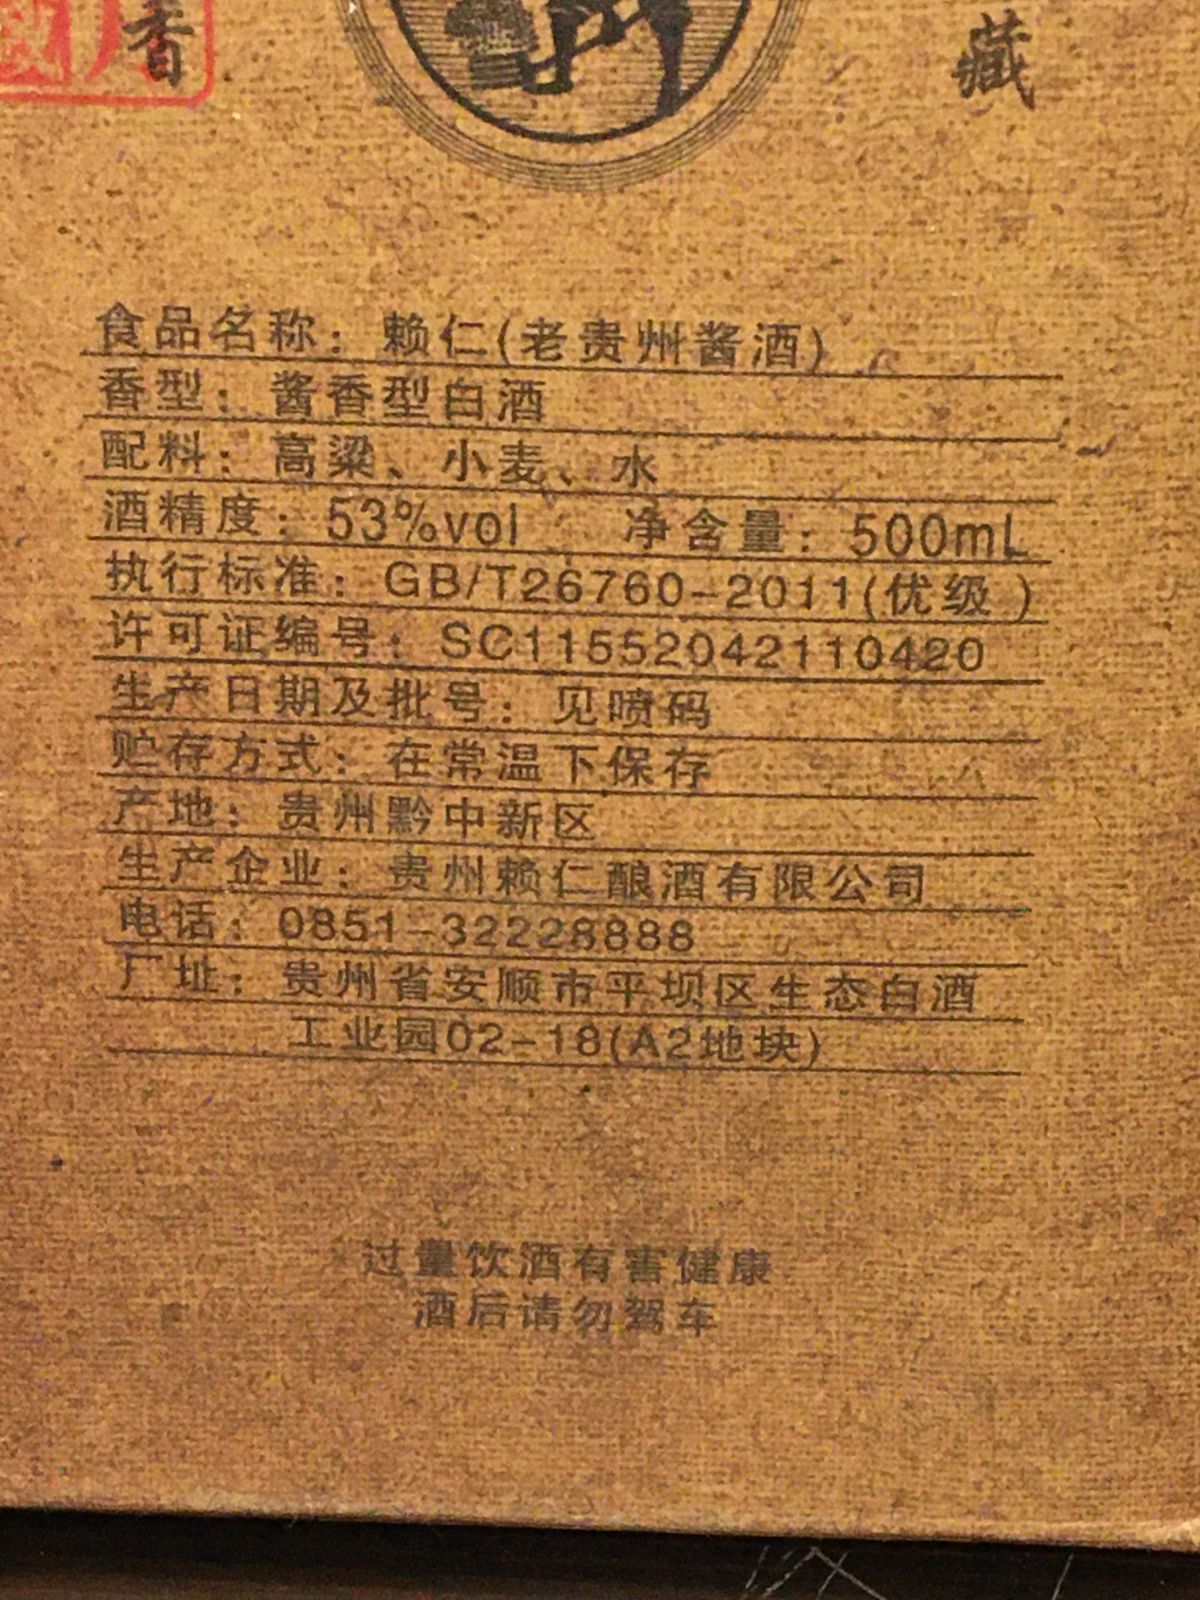 香
藏
食品名称：赖仁(老贵州酱酒)
香型：酱香型白酒
配料：高粱、小麦、水
酒精度：53%vol 净含量：500mL
执行标准：GB/T26760-2011(优级)
许可证编号：SC11552042110420
生产日期及批号：见喷码
贮存方式：在常温下保存
产地：贵州黔中新区
生产企业：贵州赖仁酿酒有限公司
电话：0851-32228888
厂址：贵州省安顺市平坝区生态白酒
工业园02-18(A2地块)
过量饮酒有害健康
酒后请勿驾车